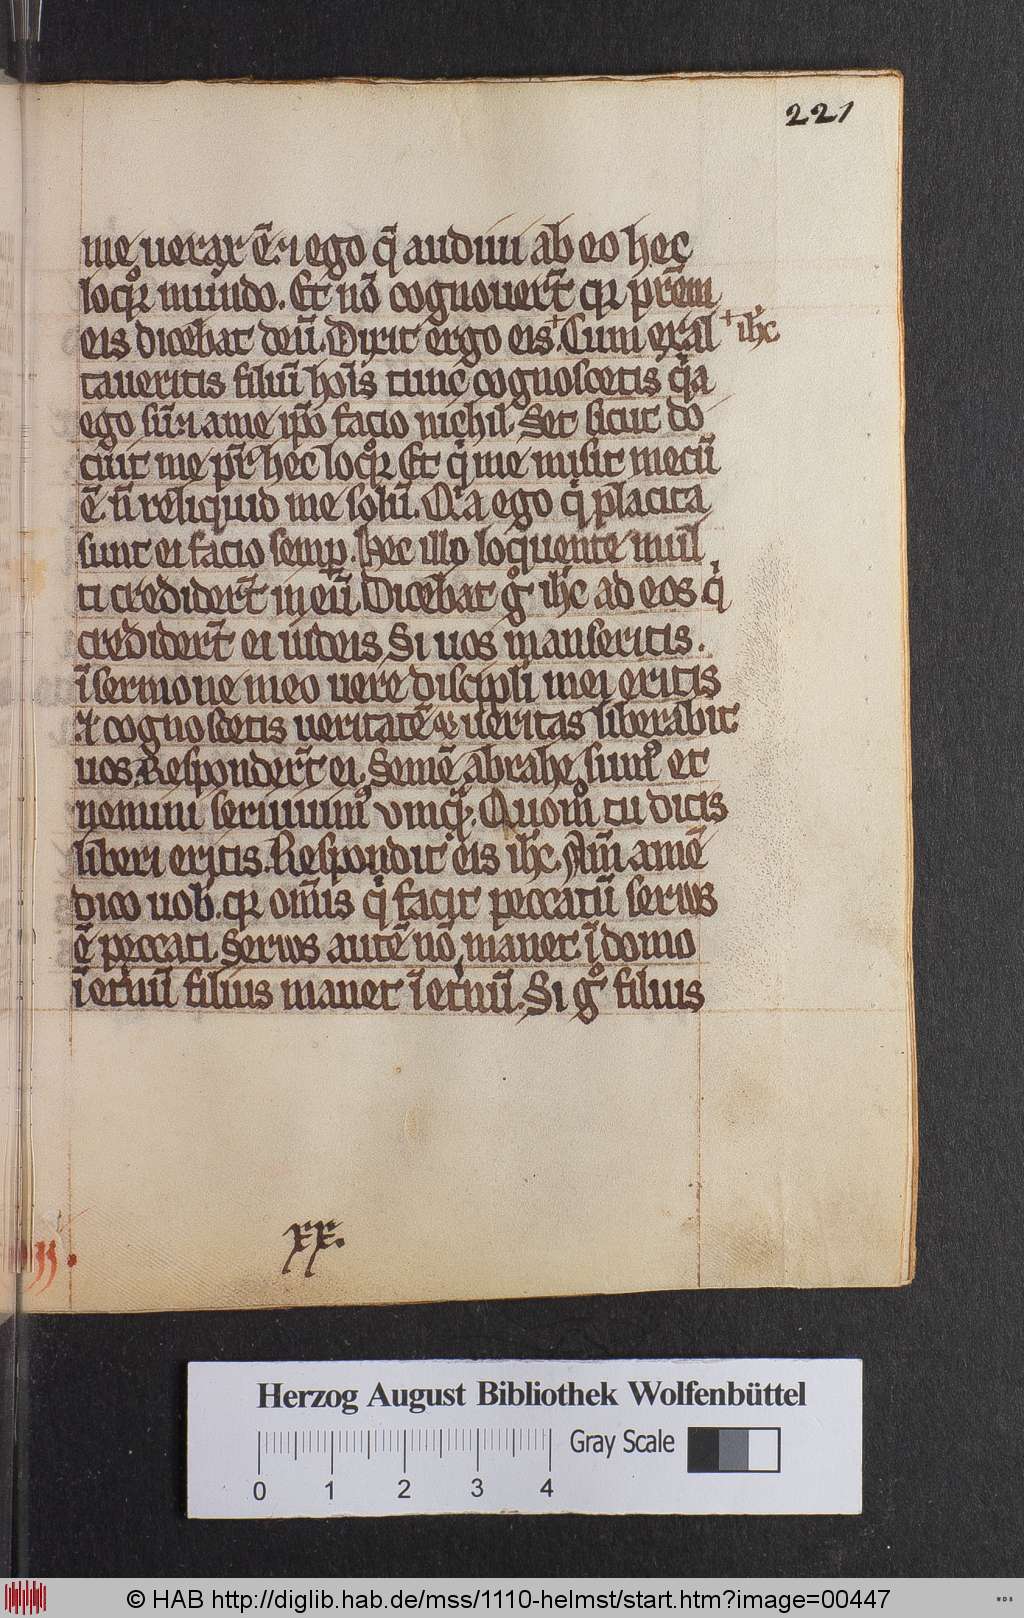 221
me uerax ē. ⁊ ego q̄ audiui ab eo hec
loqͦꝛ mundo. Et nō cognouer̄t qꝛ pr̄em
eis dicebat deū. Dixit ergo eis⁺. Cum exal
⁺ih̄c
taueritis filiū ho͞is tunc cognoscetis qͥa
ego sū. ⁊ a me ip̄o facio nichil. Set sicut do
cuit me pr̄ hec loqͦꝛ. Et qͥ me misit mecū
ē n̄ reliquid me solū. Qͥa ego q̄ placita
sunt ei facio semꝑ. Hec illo loquente mul
ti credider̄t in eū. Dicebat gͦ ih̄c ad eos qͥ
credider̄t ei iudeis Si uos manseritis.
ī sermone meo uere discipli mei eritis
⁊ cognoscetis ueritatē ⁊ ueritas liberabit
uos. Responder̄t ei. Semē abrahe sumꝰ et
nemini seruiuimꝰ vmq̄. Quomͦ tu dicis
liberi eritis. Respondit eis ih̄c. Am̄ amē
dico uob. qꝛ om̄is qͥ facit peccatū seruus
ē peccati. Seruus autē nō manet ī domo
ī etͥnū filius manet ī etͥnū. Si gͦ filius
xx.
Herzog August Bibliothek Wolfenbüttel
Gray Scale
0 1 2 3 4
© HAB http://diglib.hab.de/mss/1110-helmst/start.htm?image=00447